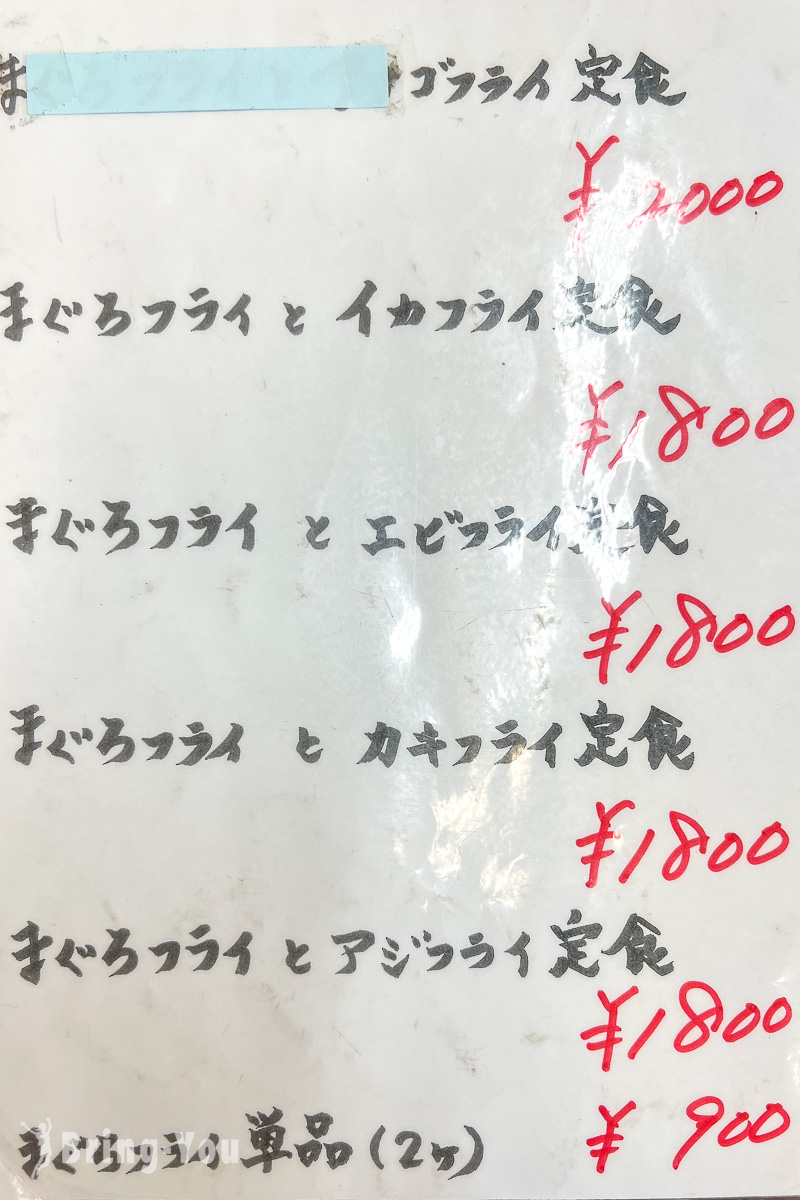 ま ゴフライ 定食
¥2000
まぐろフライ と イカフライ定食
¥1800
まぐろフライ と エビフライ定食
¥1800
まぐろフライ と カキフライ定食
¥1800
まぐろフライ と アジフライ定食
¥1800
まぐろフライ 単品(2ヶ)
¥900
Bring You